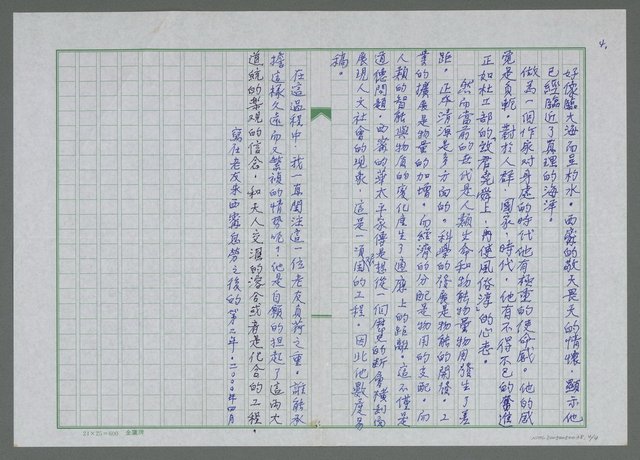 4.
好像臨大海而呈杓水。西蒙的敬天畏天的情懷,顯示他
已經臨近了真理的海洋。
做為一個作家对身處的時代他有極重的使命感。他的感
覺是負軛。對於人群、國家、時代,他有不得不已的奮進
正如杜工部的致君堯舜上,再使風俗淳的心志。
然而當前的世代是人類生命和物態物量物用發生了差
距。正本清源是多方面的。科學的發展是物態的開發。工
業的擴展是物量的加增。而經濟的分配是物用的支配。而
人類的智能與物質的變化產生了適應上的距離。這不僅是
道德問題。西蒙的華太平家傳是想從一個歷史的斷層橫剖面
展現人文社會的現象,這是一項困难的工程。因此他數度易
稿。
在這過程中,我一直関注這一位老友負荷之重。誰能承
擔這樣久遠而又繁複的情勢呢?他是自願的担起了這兩大
道統的樂观的信念,和天人交滙的溶合或者是化合的工程。
寫在老友朱西甯息勞之後的第二年。二〇〇〇年四月
24×25=600 金鷹牌